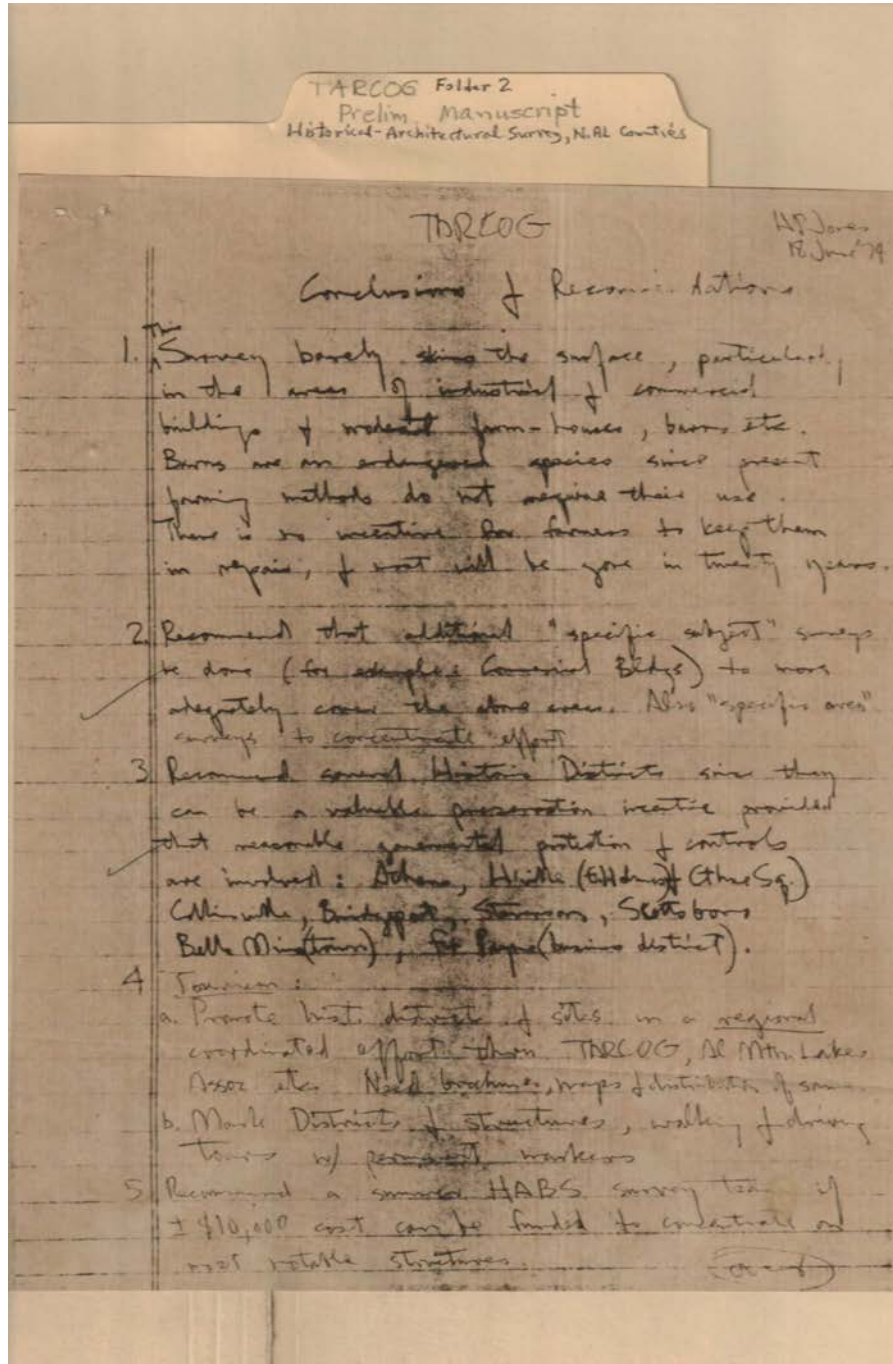 TARCOG Folder 2
Prelim Manuscript
Historical-Architectural Survey, N. AL Counties
TARCOG
HPJones
18 June '74
Conclusions & Recommendations
1. This Survey barely skims the surface, particularly
in the areas of industrial & commercial
buildings & modest farm-houses, barns etc.
Barns are an endangered species since present
farming methods do not require their use.
There is no incentive for farmers to keep them
in repair, & most will be gone in twenty years.
2. Recommend that additional "specific subject" surveys
be done (for example: Commercial Bldgs) to more
adequately cover the above areas. Also "specific area"
surveys to concentrate effort
3. Recommend several Historic Districts since they
can be a valuable preservation incentive provided
that reasonable governmental protection & controls
are involved: Athens, Hville (& CthseSq.)
Collinsville, Bridgeport, Stevenson, Scottsboro
Belle Mina (town), Ft Payne (business district).
4 Tourism:
a. Promote hist. districts & sites in a regional
coordinated effort thru TARCOG, Al Mtn. Lakes
Assoc etc. Need brochures, maps & distribution of same.
b. Mark Districts & structures, walking & driving
tours w/ permanent markers
5 Recommend a summer HABS survey team if
± $10,000 cost can be funded to concentrate on
most notable structures.
(over)